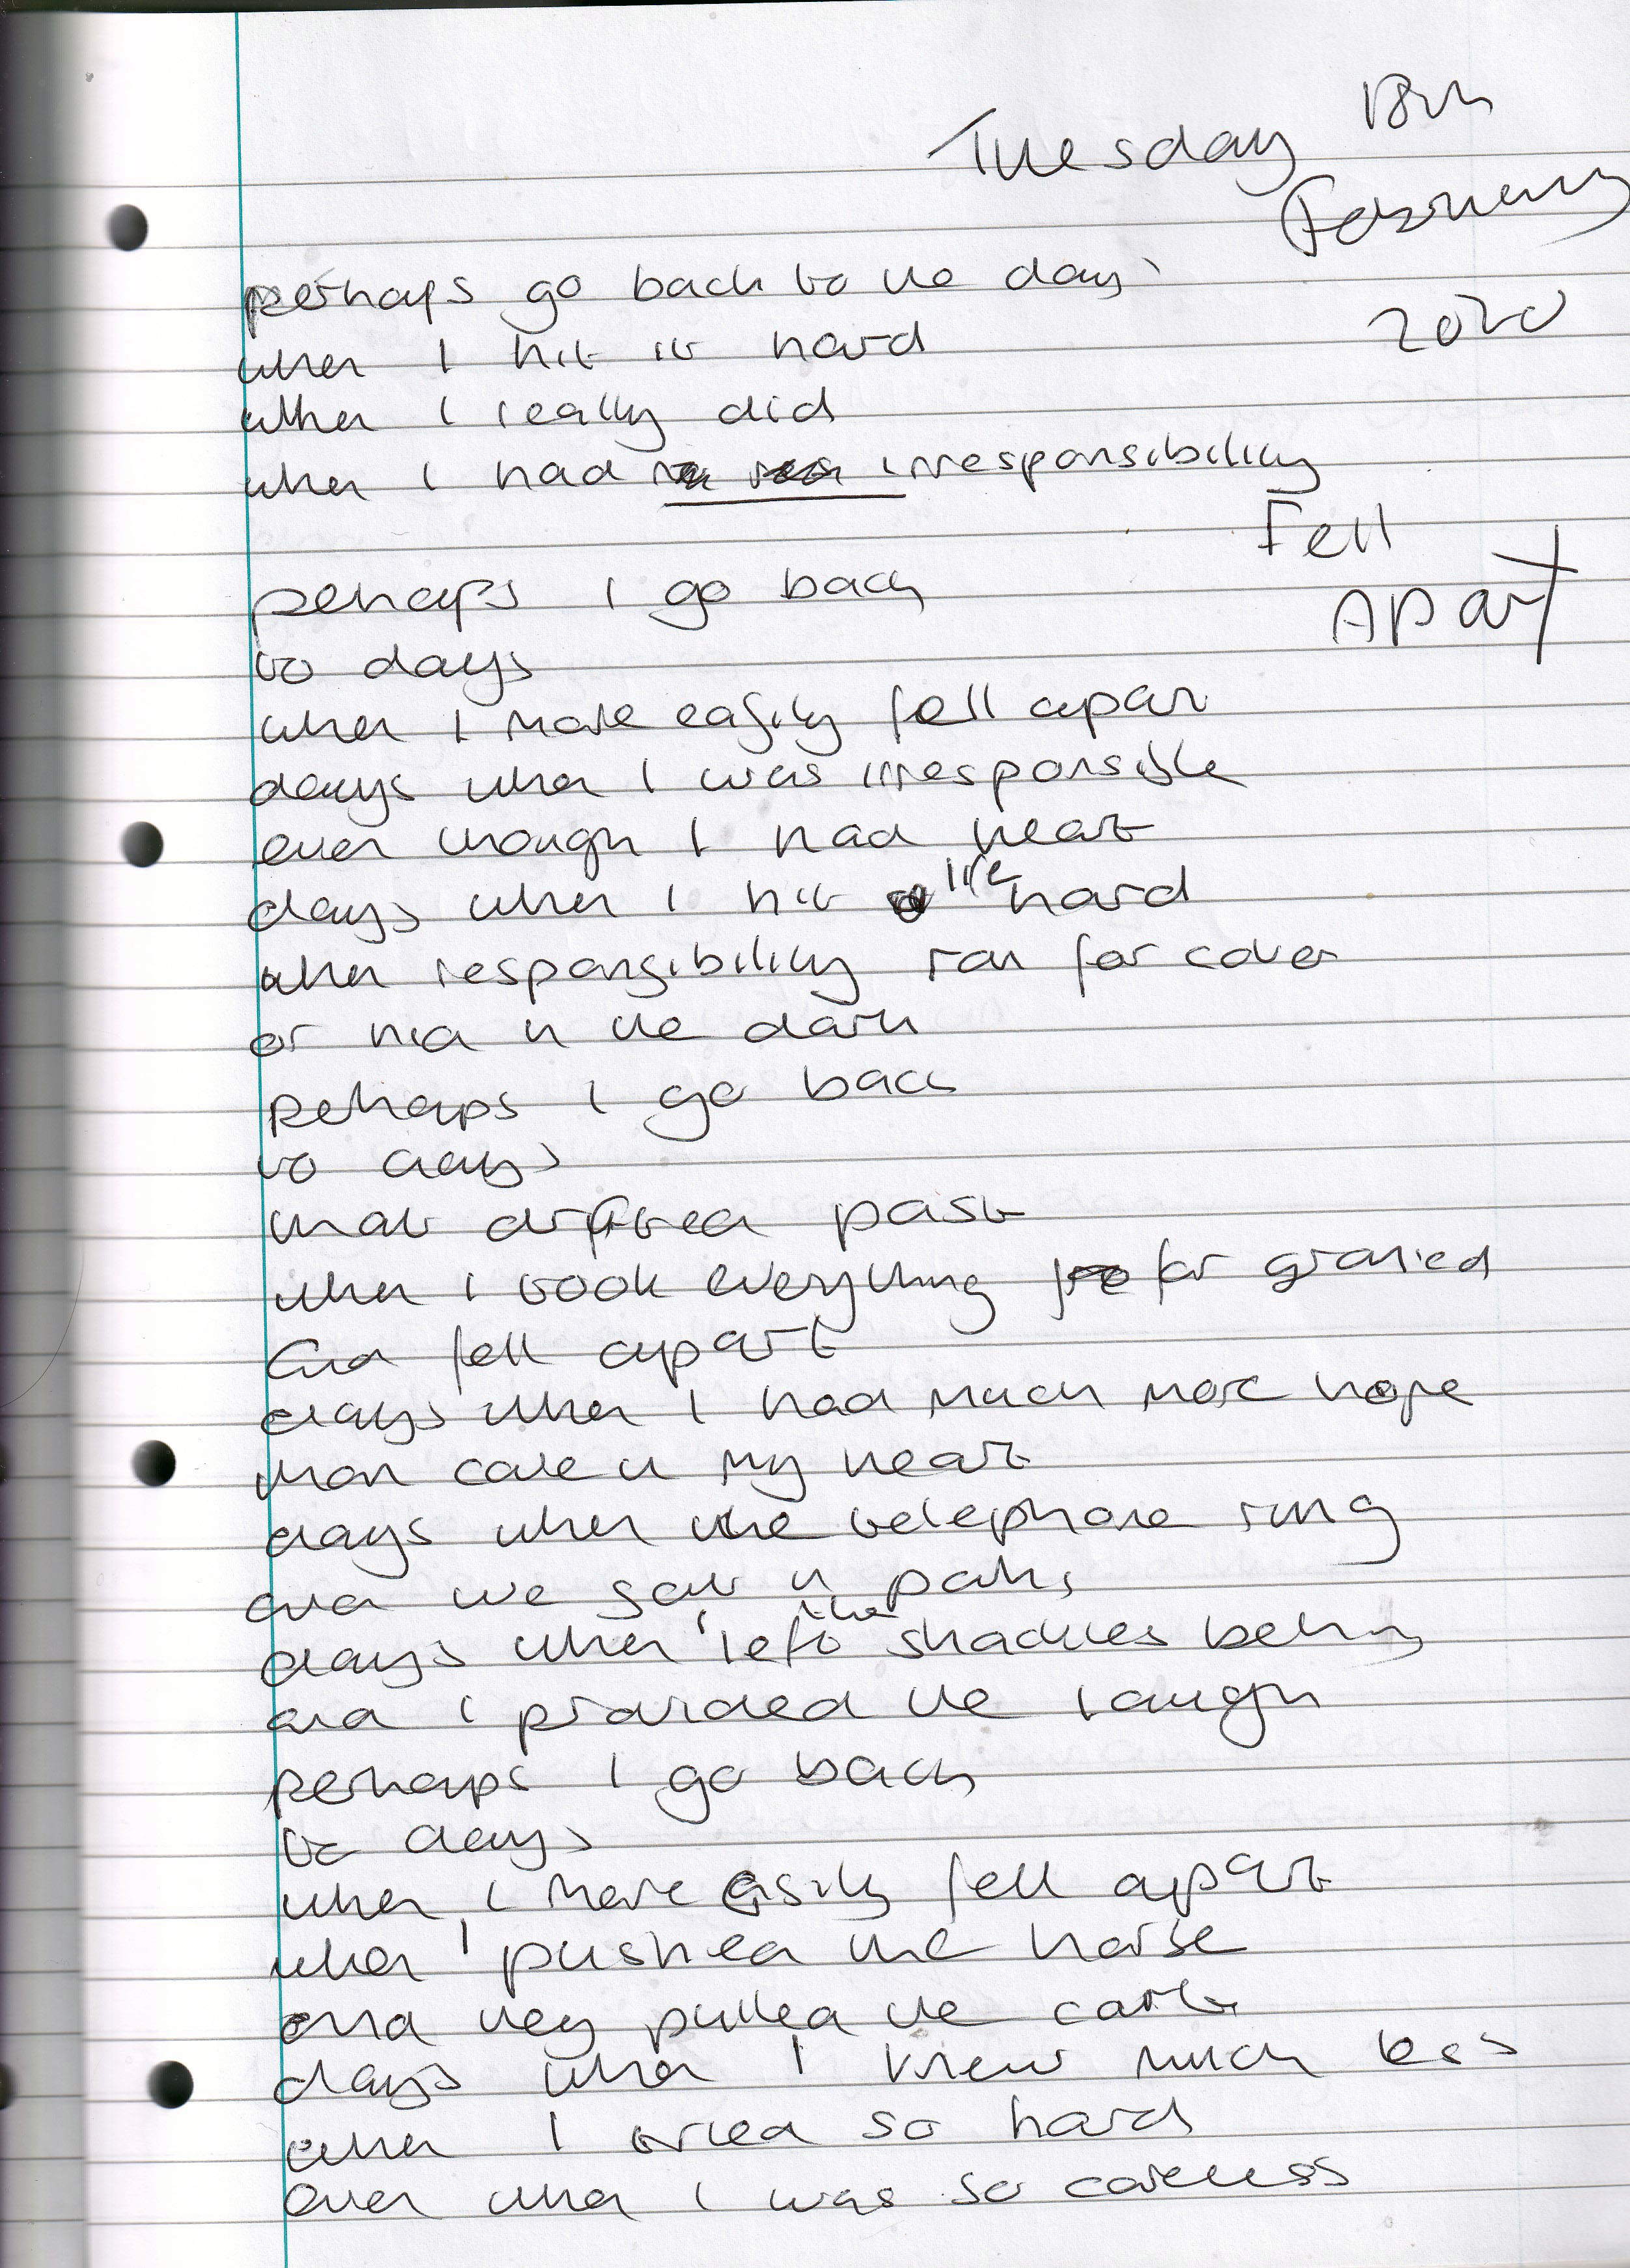 Tuesday 18th
February
2020
perhaps go back to the days
when I hit it hard
when I really did
when I had irresponsibility
Fell
Apart
perhaps I go back
to days
when I more easily fell apart
days when I was irresponsible
even though I had heart
days when I hit life hard
when responsibility ran for cover
or hid in the dark
perhaps I go back
to days
that drifted past
when I took everything for granted
and fell apart
days when I had much more hope
than care in my heart
days when the telephone ring
and we sat in parks
days when I left the shackles behind
and I provided the laugh
perhaps I go back
to days
when I more easily fell apart
when I pushed the horse
and they pulled the cart
days when I knew much less
when I tried so hard
even when I was so careless